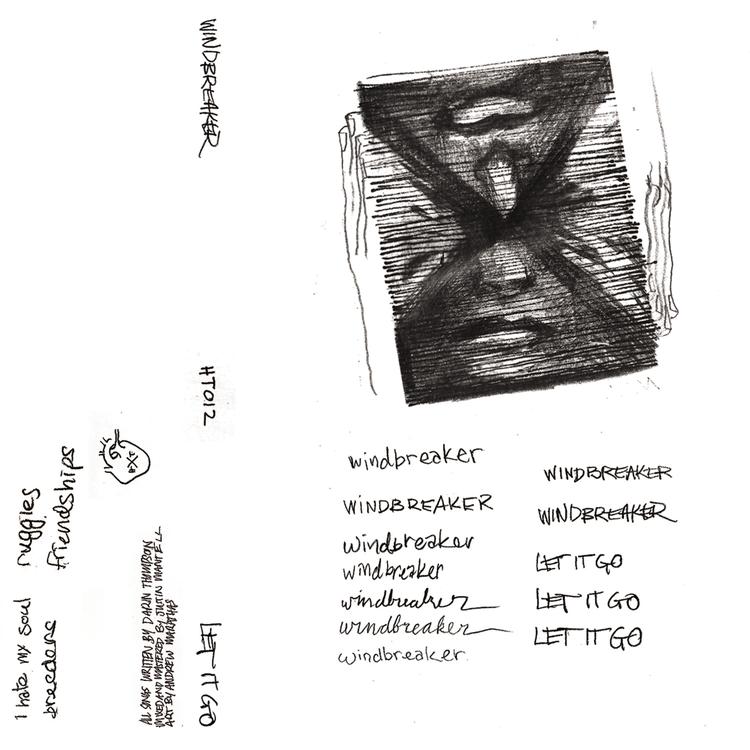 WINDBREAKER
HT012
LET IT GO
I hate my soul
breeders
ruggies
friendships
ALL SONGS WRITTEN BY DARUN THOMPSON
MIXED AND MASTERED BY JUSTIN MANTELL
ART BY ANDREW
windbreaker
WINDBREAKER
windbreaker
windbreaker
windbreaker
windbreaker
windbreaker
WINDBREAKER
WINDBREAKER
LET IT GO
LET IT GO
LET IT GO